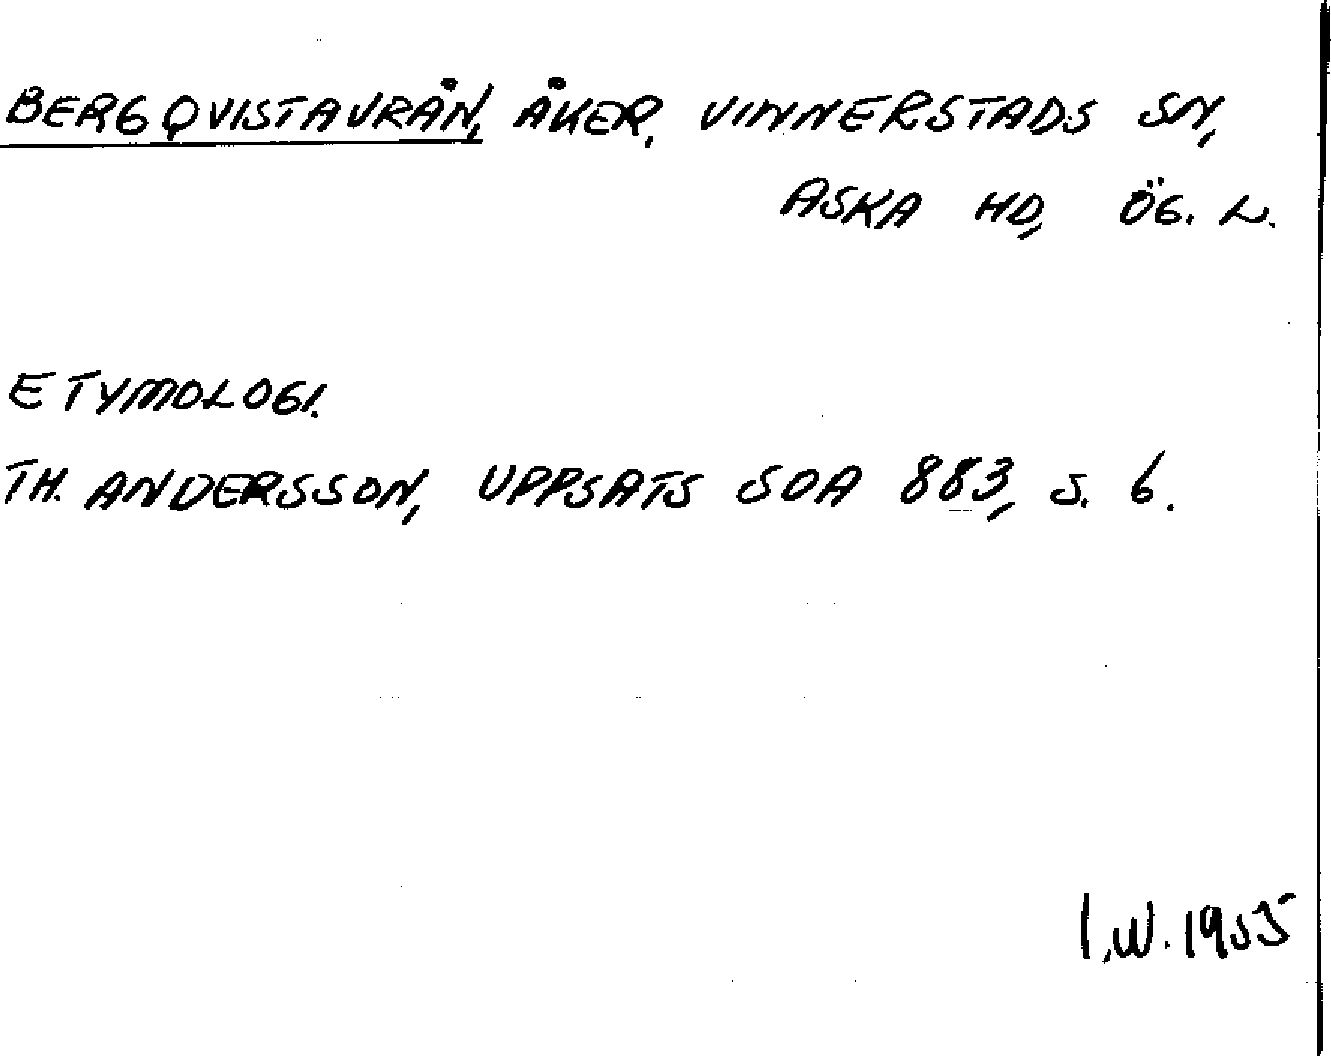 BERGQVISTAVRÅN, ÅKER, VINNERSTADS SN,
ASKA HD, ÖG. L.
ETYMOLOGI.
TH. ANDERSSON, UPPSATS SOA 883, S. 6.
I.W. 1955